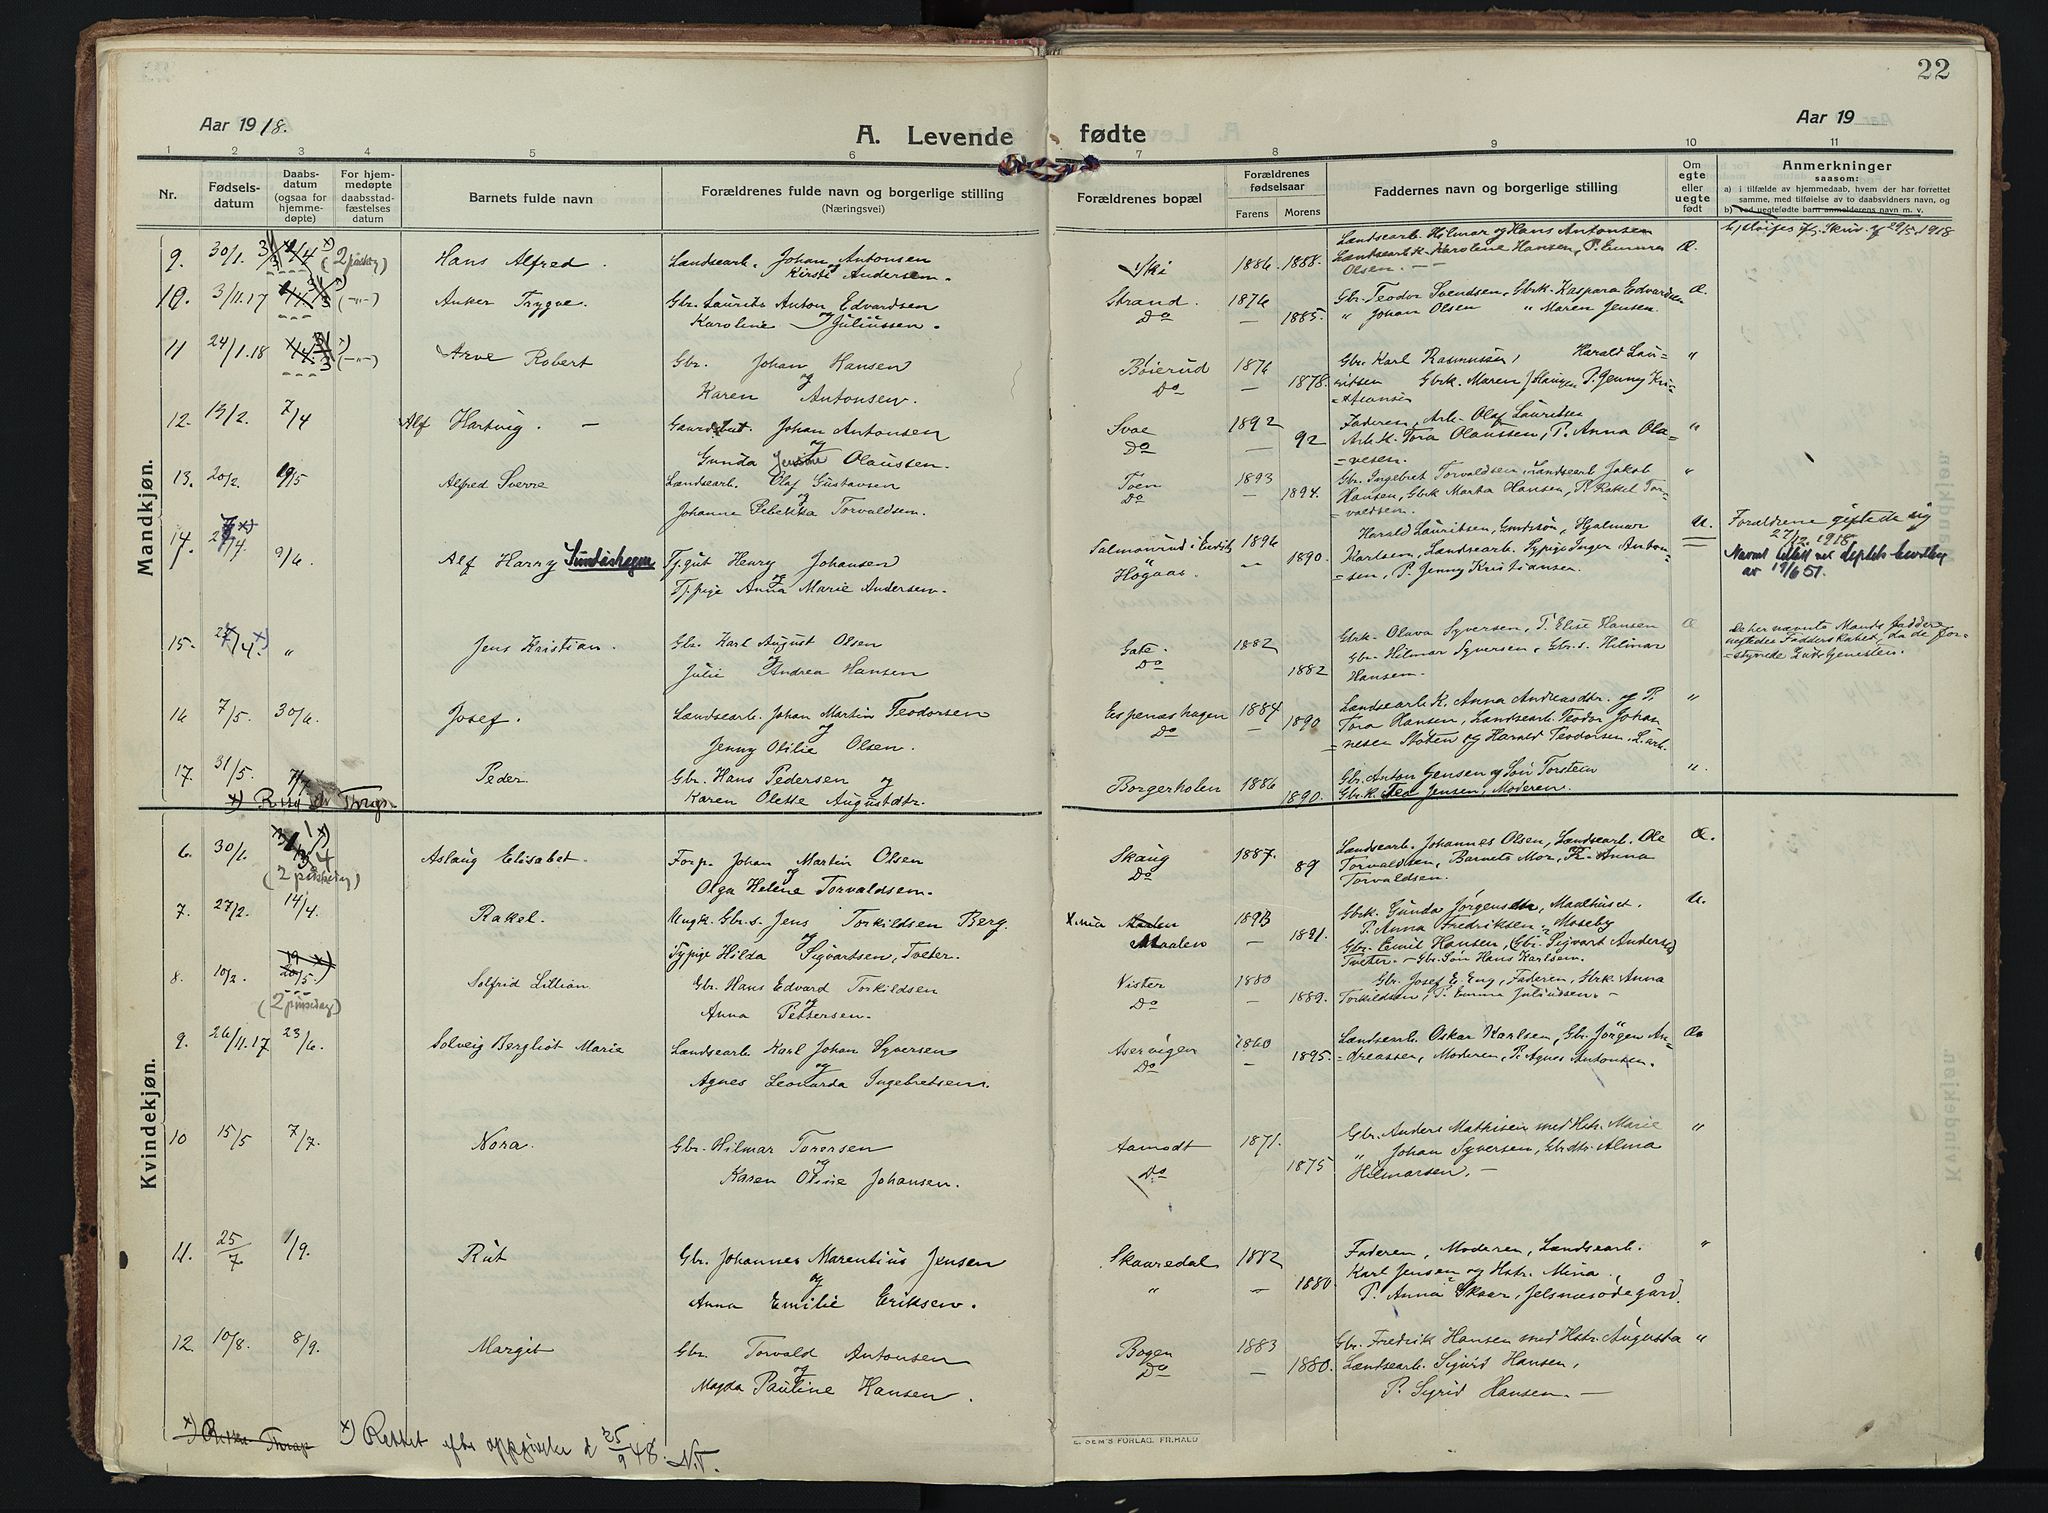 22
Aar 1918.
A. Levende fødte
Aar 19
1 2 3 4 5 6 7 8 9 10 11
Nr.
Fødsels-
datum
Daabs-
datum
(ogsaa for
hjemme-
døpte)
For hjem-
medøpte
daabsstad-
fæstelses
datum
Barnets fulde navn
Forældrenes fulde navn og borgerlige stilling
(Næringsvei)
Forældrenes bopæl
Forældrenes
fødselsaar
Farens Morens
Faddernes navn og borgerlige stilling
Om
egte
eller
uegte
født
Anmerkninger
saasom:
a) i tilfælde av hjemmedaab, hvem der har forrettet
samme, med tilføielse av to daabsvidners navn, og
b) ved uegtefødte barn anmelderens navn m. v.
Mandkjøn.
9. 30/1. 1/4 (2 pinsedag) Hans Alfred. Landsearb. Johan Antonsen
og Kirsti Andersen. Ski 1886. 1888.
Landsearb. Hilmar og Hans Antonsen
Landsearbk. Karoline Hansen, P. Emma
Olsen. — Æ.
10. 3/11.17 1/4 Anker Trygve. Gbr. Laurits Anton Edvardsen
Karoline og Juliussen. Strand. 1876
Do — 1885.
Gbr. Teodor Svendsen, Gbrk. Kaspara Edvardsen Æ.
" Johan Olsen " Maren Jensen.
11 24/1.18 1/4 Arve Robert Gbr. Johan Hansen
og
Karen Antonsen. Bøierud 1876
Do — 1878.
Gbr. Karl Rasmussen, Harald Lau=
ritsen Gbrk. Maren Hansen P. Jenny Kri=
=stiansen "
12. 13/2. 7/4 Alf Hartvig. — Johan Antonsen
og
Gunda Jensine Olaussen. Svae 1892
Do — 92
Faderen, Arb. Olaf Lauritsen
Arb.k. Tora Olaussen, P. Anna Ola=
=vesen. "
13. 20/2. 19/5 Alfred Sverre Landsearb. Olaf Gustavsen
og
Johanne Rebekka Torvaldsen. Tven 1893
Do — 1894.
Gbr. Ingebret Torvaldsen, Landsearb. Jakob
Hansen, Gbrk Marta Hansen, P. Rakel Tor=
valdsen. "
14. 7/4 x) 9/6 Alf Harry Sundåshagen Tj.gut Henry Johansen
og
Tj.pige Anna Marie Andersen. 1896
Høgaas. — 1890.
Harald Lauritsen, Gaardsøn, Hjalmar
Karlsen, Landsearb. Sypige Inga Anton=
=sen, P. Jenny Kristiansen. U.
Foreldrene giftede sig
27/12 1918
av 19/6 51.
15. 7/4. x) " Jens Kristian. Gbr. Karl August Olsen
og
Julie Andrea Hansen Gate. 1882
Do 1882
Gbrk. Olava Syversen, P. Elise Hansen
Gbr. Hilmar Syversen, Gbr.s. Hilmar
Hansen. Æ
De her nævnte Mands faddere
negtedes Fadderskabet, da de for=
=styrrede Gudstjenesten.
16 7/5. 30/6. Josef. Landsearb. Johan Martin Teodorsen
og
Jenny Otilie Olsen. Espenæshagen 1884
Do — 1890
Landsearb.K. Anna Andreasdtr. og P.
Tora Hansen, Landsearb. Teodor Johan
=nesen Moten og Harald Teodorsen, L.arb. "
17. 31/5. 7/7 Peder. Gbr. Hans Pedersen og
Karen Olette Augustdtr. Borgerholen 1886
1890.
Gbr. Anton Jensen og Søn Torstein
Gbr.k. Tea Jensen, Moderen. "
Kvindekjøn.
6. 30/1. (2 påskedag) Aslaug Elisabet. Forp. Johan Martin Olsen
og
Olga Helene Torvaldsen. Skaug 1887.
Do 89
Landsearb. Johannes Olsen, Landsearb. Ole
Torvaldsen, Barnets Mor, Fr. Anna
Torvaldsen. Æ.
7. 27/2. 14/4. Rakel. Ungk. Gbr.s. Jens Torkildsen Berg.
og
Tj.pige Hilda Sigvartsen, Tveter. X.nia Maalen 1893
— 1891.
Gbrk. Gunda Jørgensen, Maalhuset.
P. Anna Fredriksen, Moseby
Gbr. Emil Hansen, (Gbr. Sigvart Anderse)
Tveter. — Gbr. Søn Hans Karlsen. U.
8. 10/2. 19 20/5. x) (2 pinsedag) Solfrid Lillian. Gbr. Hans Edvard Torkildsen
og
Anna Pettersen. Vister 1880
Do 1889.
Gbr. Josef E. Eng, Faderen, Gbrk. Anna
Torkildsen, P. Emma Juliussen. —
9. 26/11.17 23/6. Solveig Bergliot Marie Landsearb Karl Johan Syversen
og
Agnes Leonarda Ingebretsen. Aservigen 1860
Do — 1895.
Landsearb. Oskar Karlsen, Gbr. Jørgen An=
=dreassen, Moderen, P. Agnes Antonsen. Æ
10 15/5 7/7. Nora. Gbr. Hilmar Toresen
og
Karen Oline Johansen. Aamodt 1871.
Do. 1875
Gbr. Anders Mathisen med Hstr. Marie
" Johan Syversen, Gbrdtr. Alma
Hilmarsen. — "
11. 25/7 1/9. Rut Gbr. Johannes Marentius Jensen
og
Anna Emilie Eriksen. Skaaredal 1882
" — 1880
Faderen, Moderen, Landsearb.
Karl Jensen og Hstr. Mina.
P. Anna Skaar, Jelsnesødegård. "
12. 10/8. 8/9. Margit Gbr. Torvald Antonsen
og
Magda Pauline Hansen. Bogen 1883
Do — 1880.
Gbr. Fredrik Hansen med Hstr. Augusta
Landsearb. Sigurd Hansen,
P. Sigrid Hansen. — "
x) Rettet efter oppgivelse d 25/9 48. N.T.
E. SEM'S FORLAG, FR.HALD